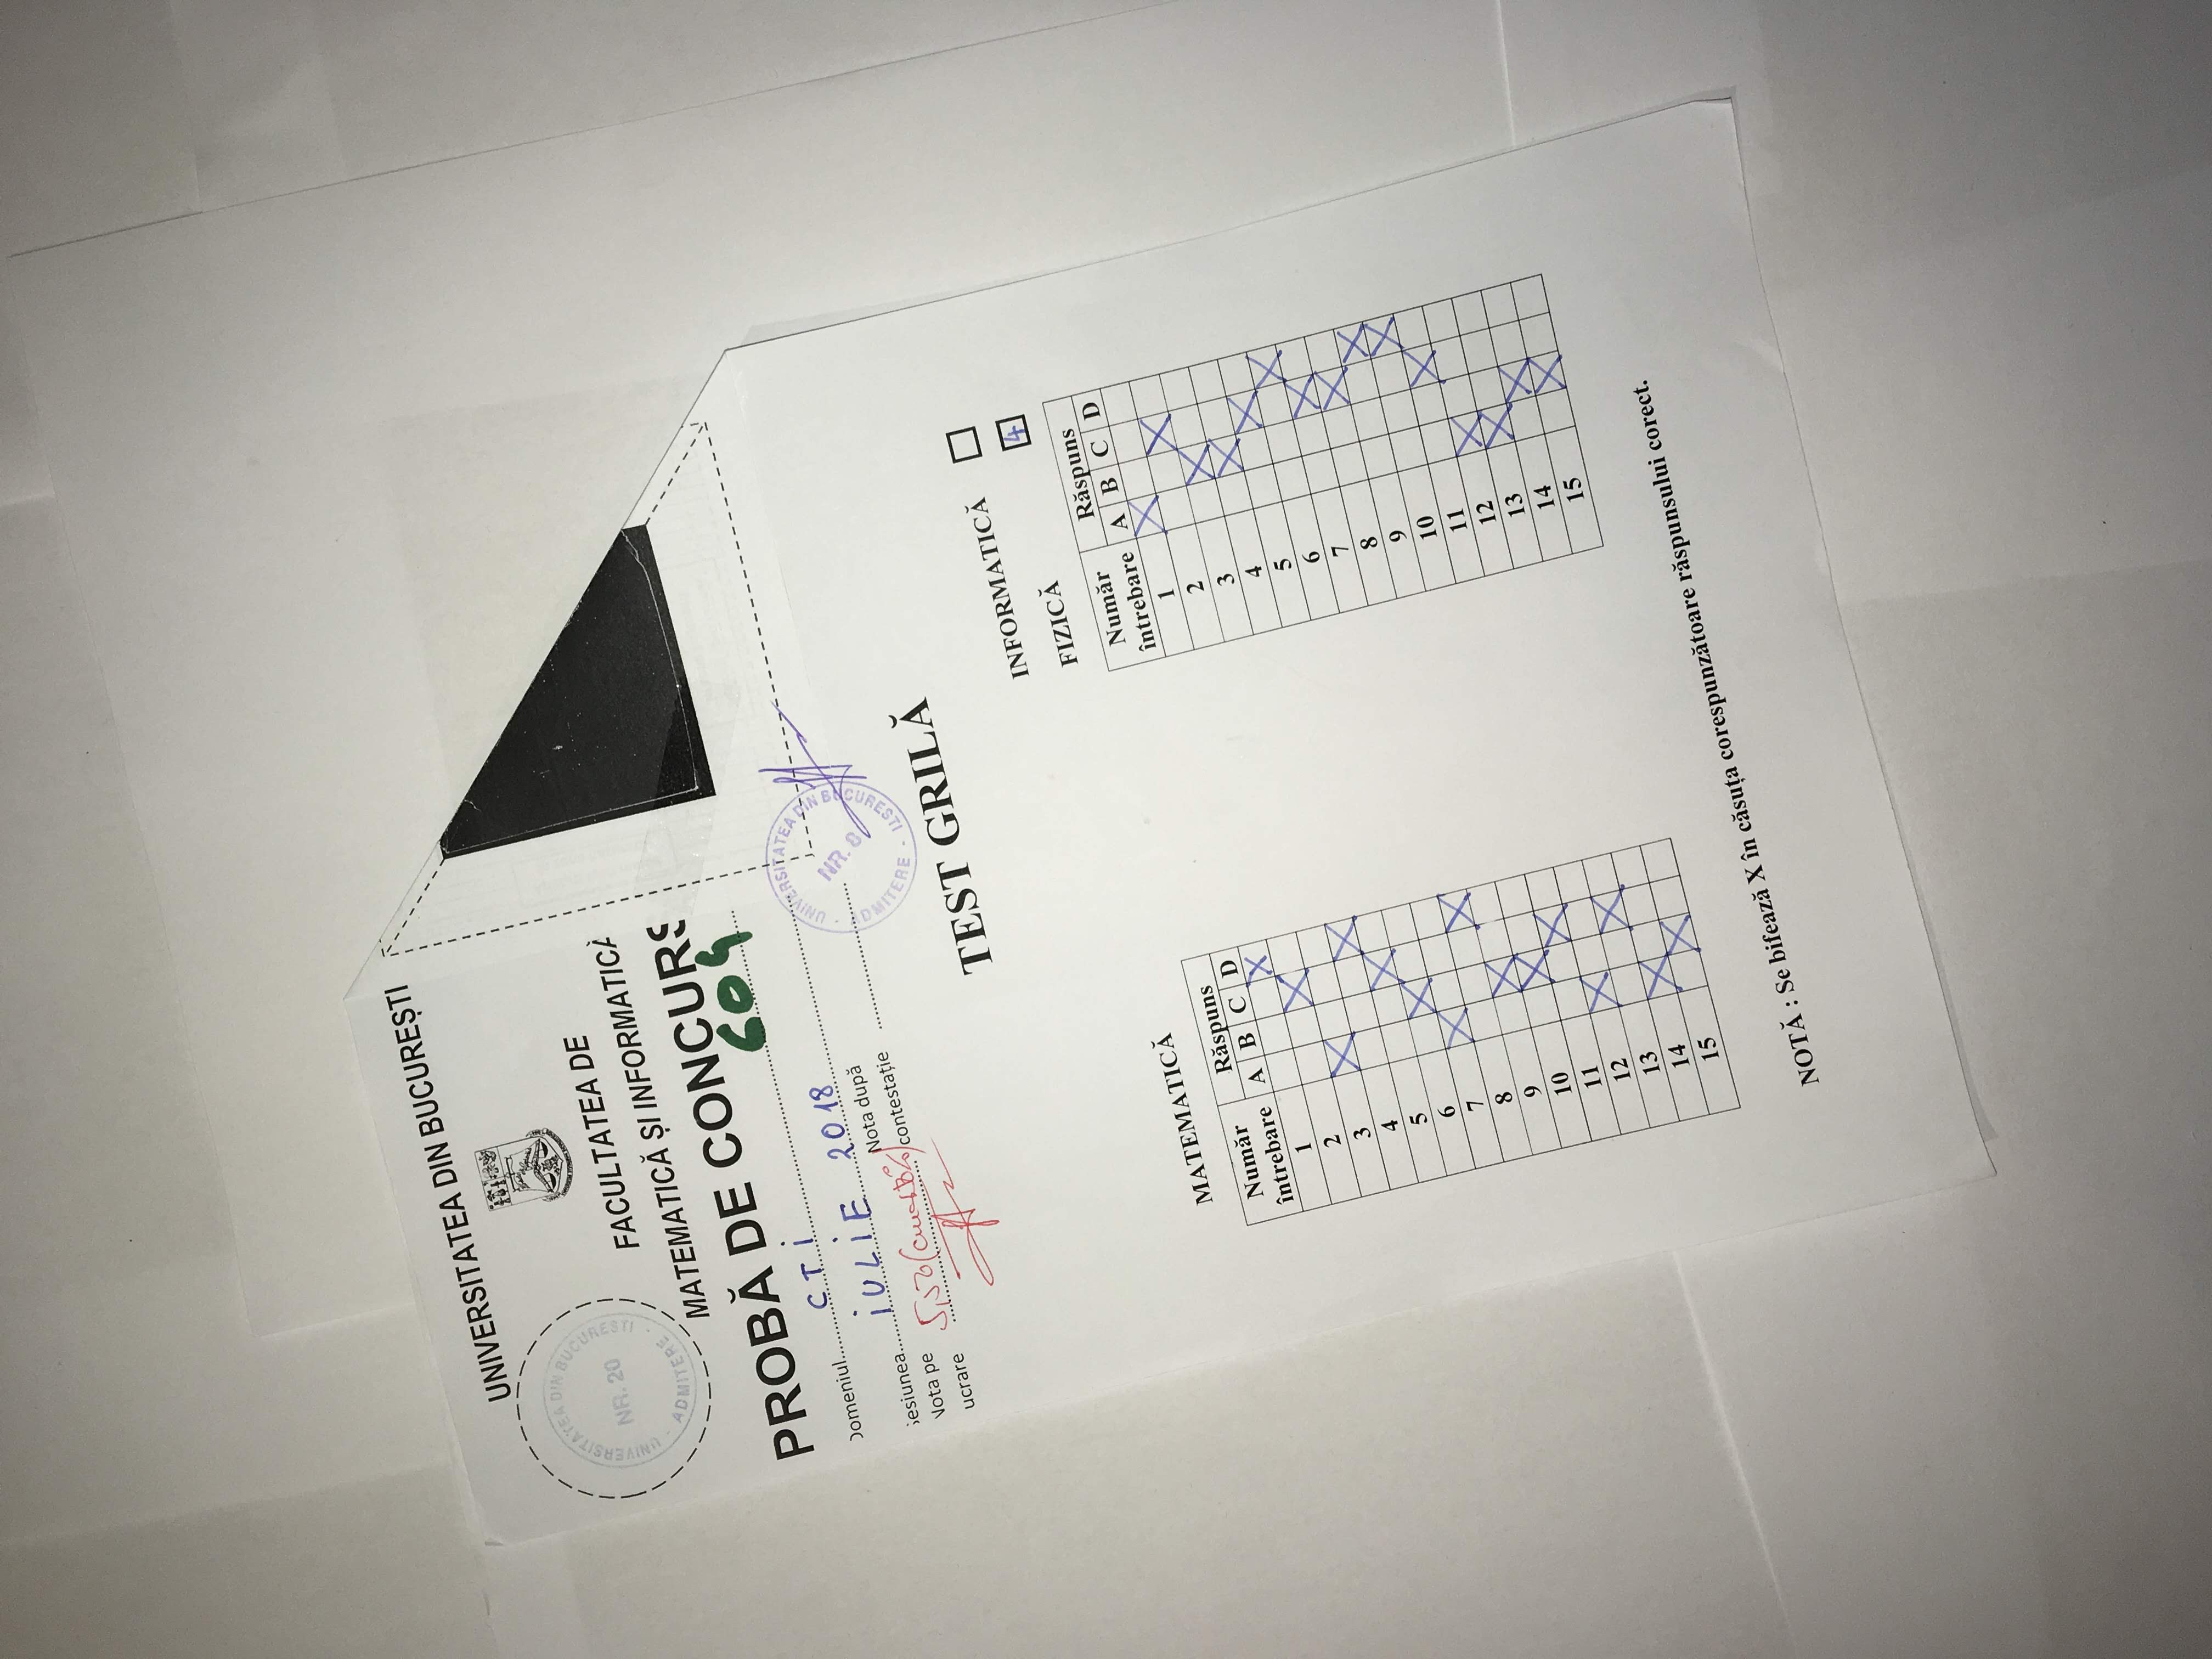 UNIVERSITATEA DIN BUCUREȘTI
UNIVERSITATEA DIN BUCUREȘTI
NR. 20
ADMITERE
FACULTATEA DE
MATEMATICĂ ȘI INFORMATICĂ
PROBĂ DE CONCURS
604
Domeniul CTI
Sesiunea IULIE 2018
Nota pe
ucrare
5,50
Nota după
contestație
UNIVERSITATEA DIN BUCUREȘTI
NR. 8
ADMITERE
TEST GRILĂ
MATEMATICĂ
Număr întrebare Răspuns
A B C D
1 X
2 X
3 X
4 X
5 X
6 X
7 X
8 X
9 X
10 X
11 X
12 X
13 X
14 X
15 X
INFORMATICĂ
FIZICĂ 4
Număr întrebare Răspuns
A B C D
1 X
2 X
3 X
4 X
5 X
6 X
7 X
8 X
9 X
10 X
11 X
12 X
13 X
14 X
15 X
NOTĂ : Se bifează X în căsuța corespunzătoare răspunsului corect.